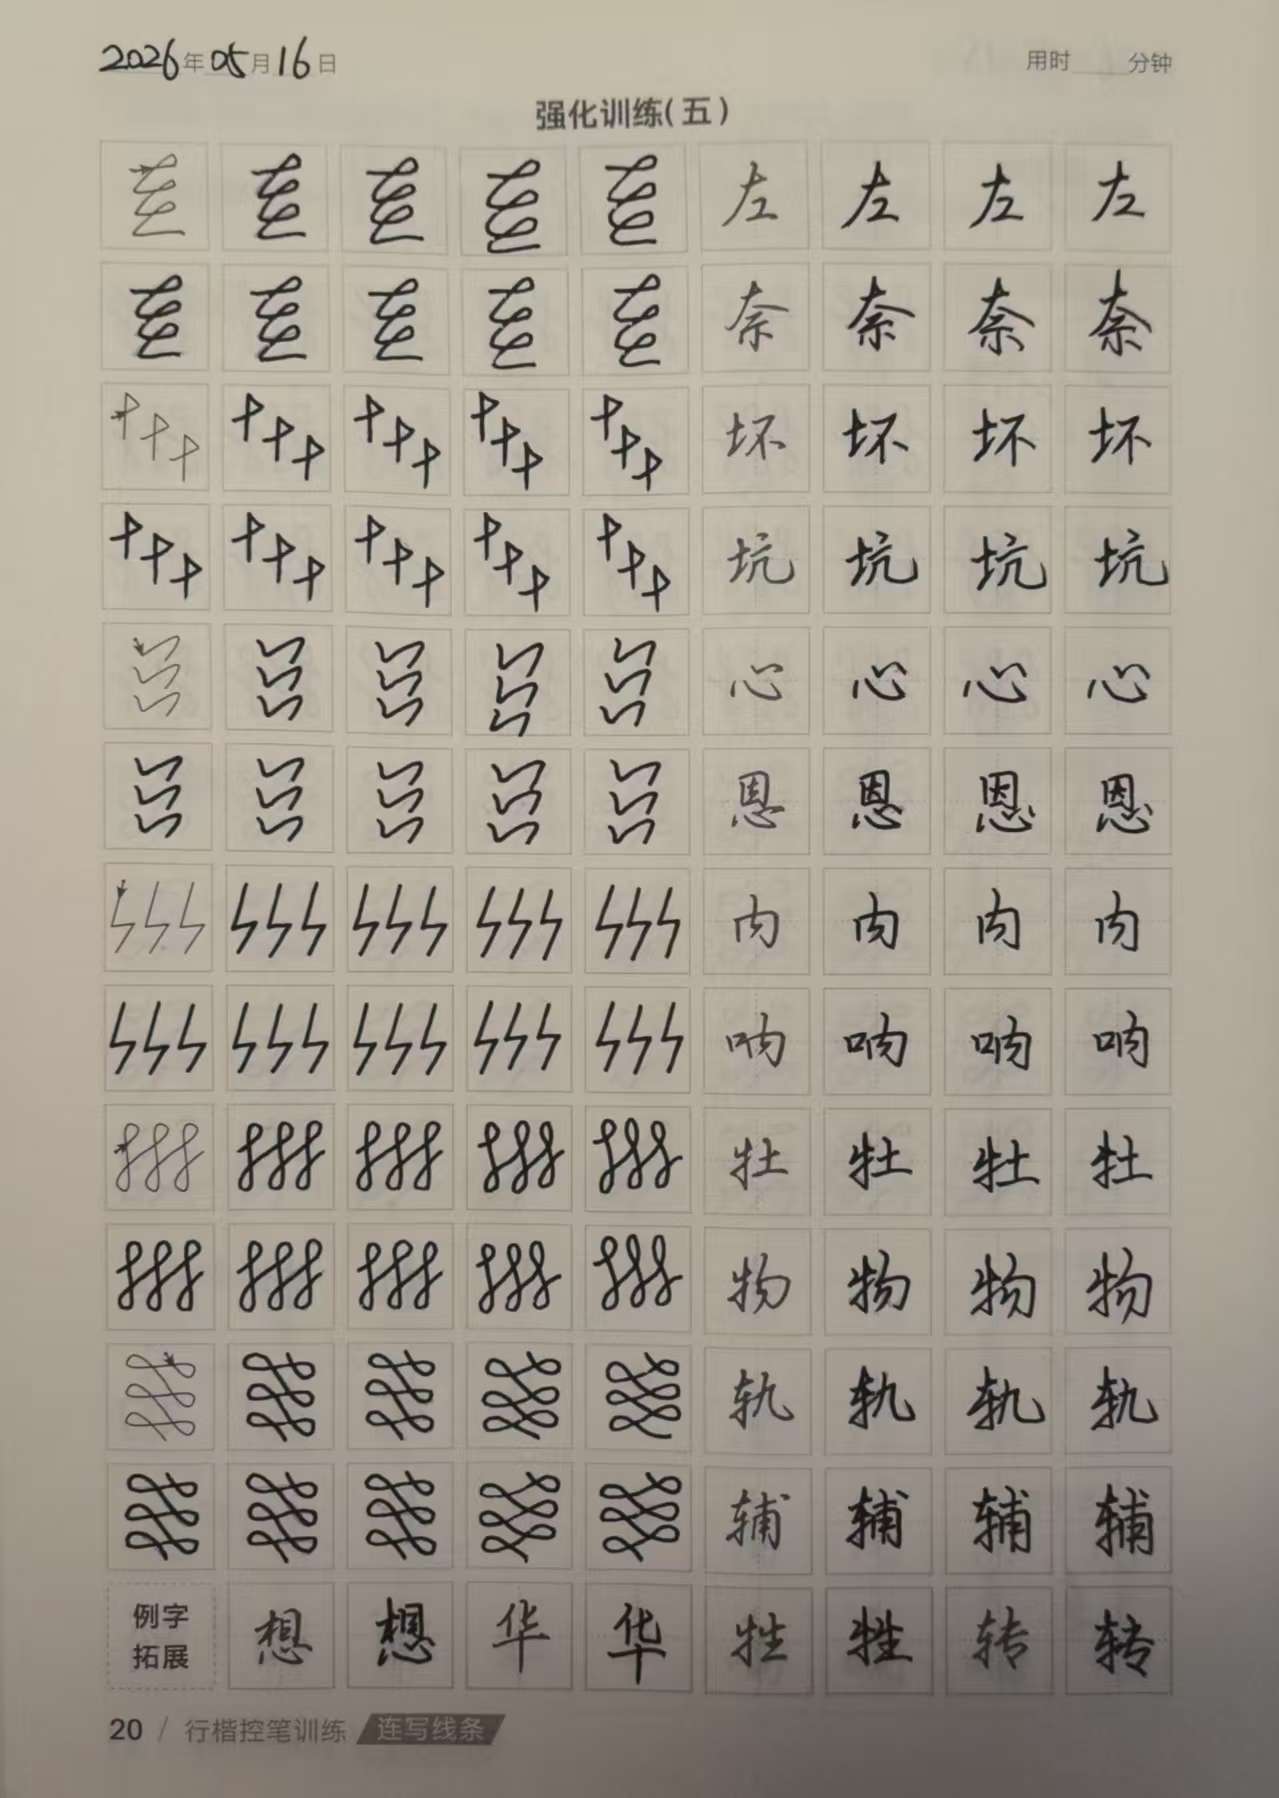 2026年05月16日 用时____分钟
强化训练(五)
左 左 左 左
奈 奈 奈 奈
坏 坏 坏 坏
坑 坑 坑 坑
心 心 心 心
恩 恩 恩 恩
内 内 内 内
呐 呐 呐 呐
牡 牡 牡 牡
物 物 物 物
轨 轨 轨 轨
辅 辅 辅 辅
例字拓展 想 想 华 华 牲 牲 转 转
20 / 行楷控笔训练 连写线条